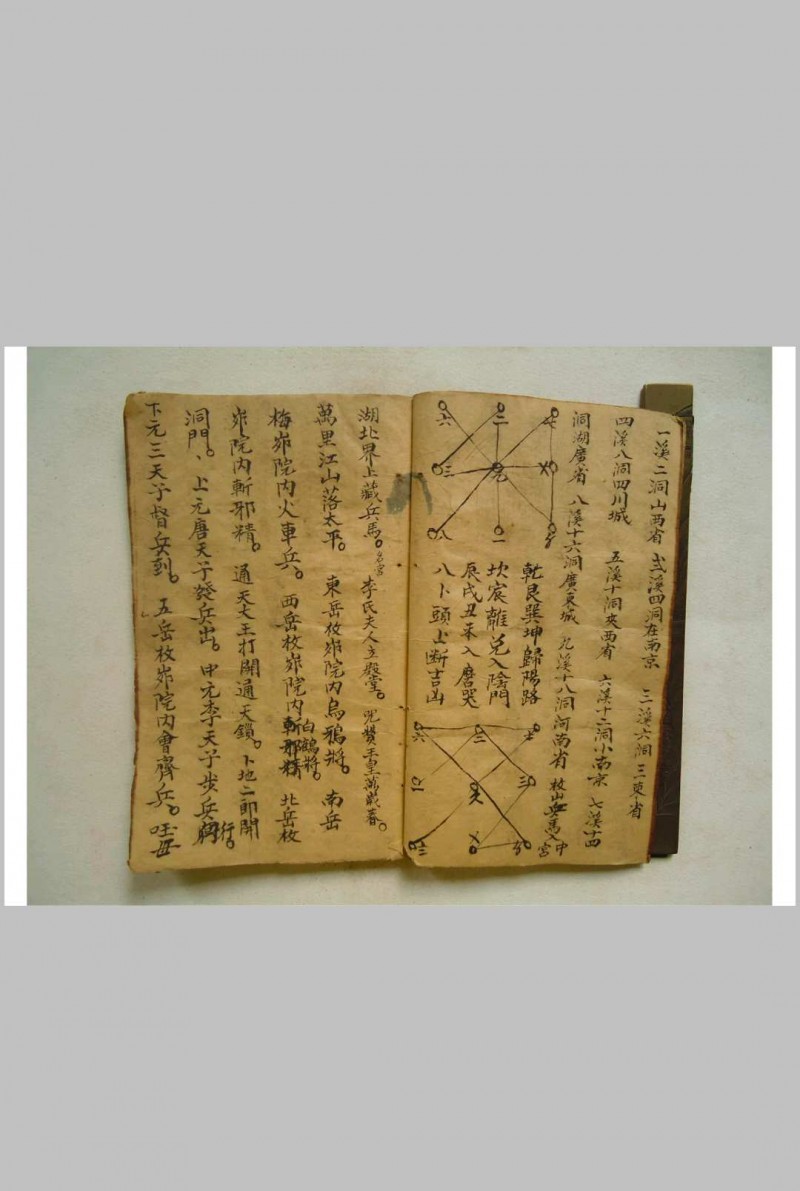 一溪二洞山西省 弍溪四洞在南京 三溪六洞三東省
四溪八洞四川城 五溪十洞夾西省 六溪十二洞小南京 七溪十四
洞湖廣省 八溪十六洞廣東城 九溪十八洞河南省 枚山兵馬入中宮
乾艮巽坤歸陽路
坎宸離兌入陰門
辰戌丑未入磨哭
八卜頭上断吉凶
七 二 六
三
一 八
六 三 七
湖北界上藏兵馬。 李氏夫人立殿堂。 王皇萬歲春。
萬里江山落太平。 東岳枚䢵院內烏鴉將。 南岳
梅䢵院內火車兵。 西岳枚䢵院內白鶴將。 北岳枚
䢵院內斬邪精。 通天大王打開通天鎖。 卜地二郎開
洞門、 上元唐天子發兵出。 中元李天子步兵行。
下元三天子督兵到。 五岳枚䢵院內會齊兵。